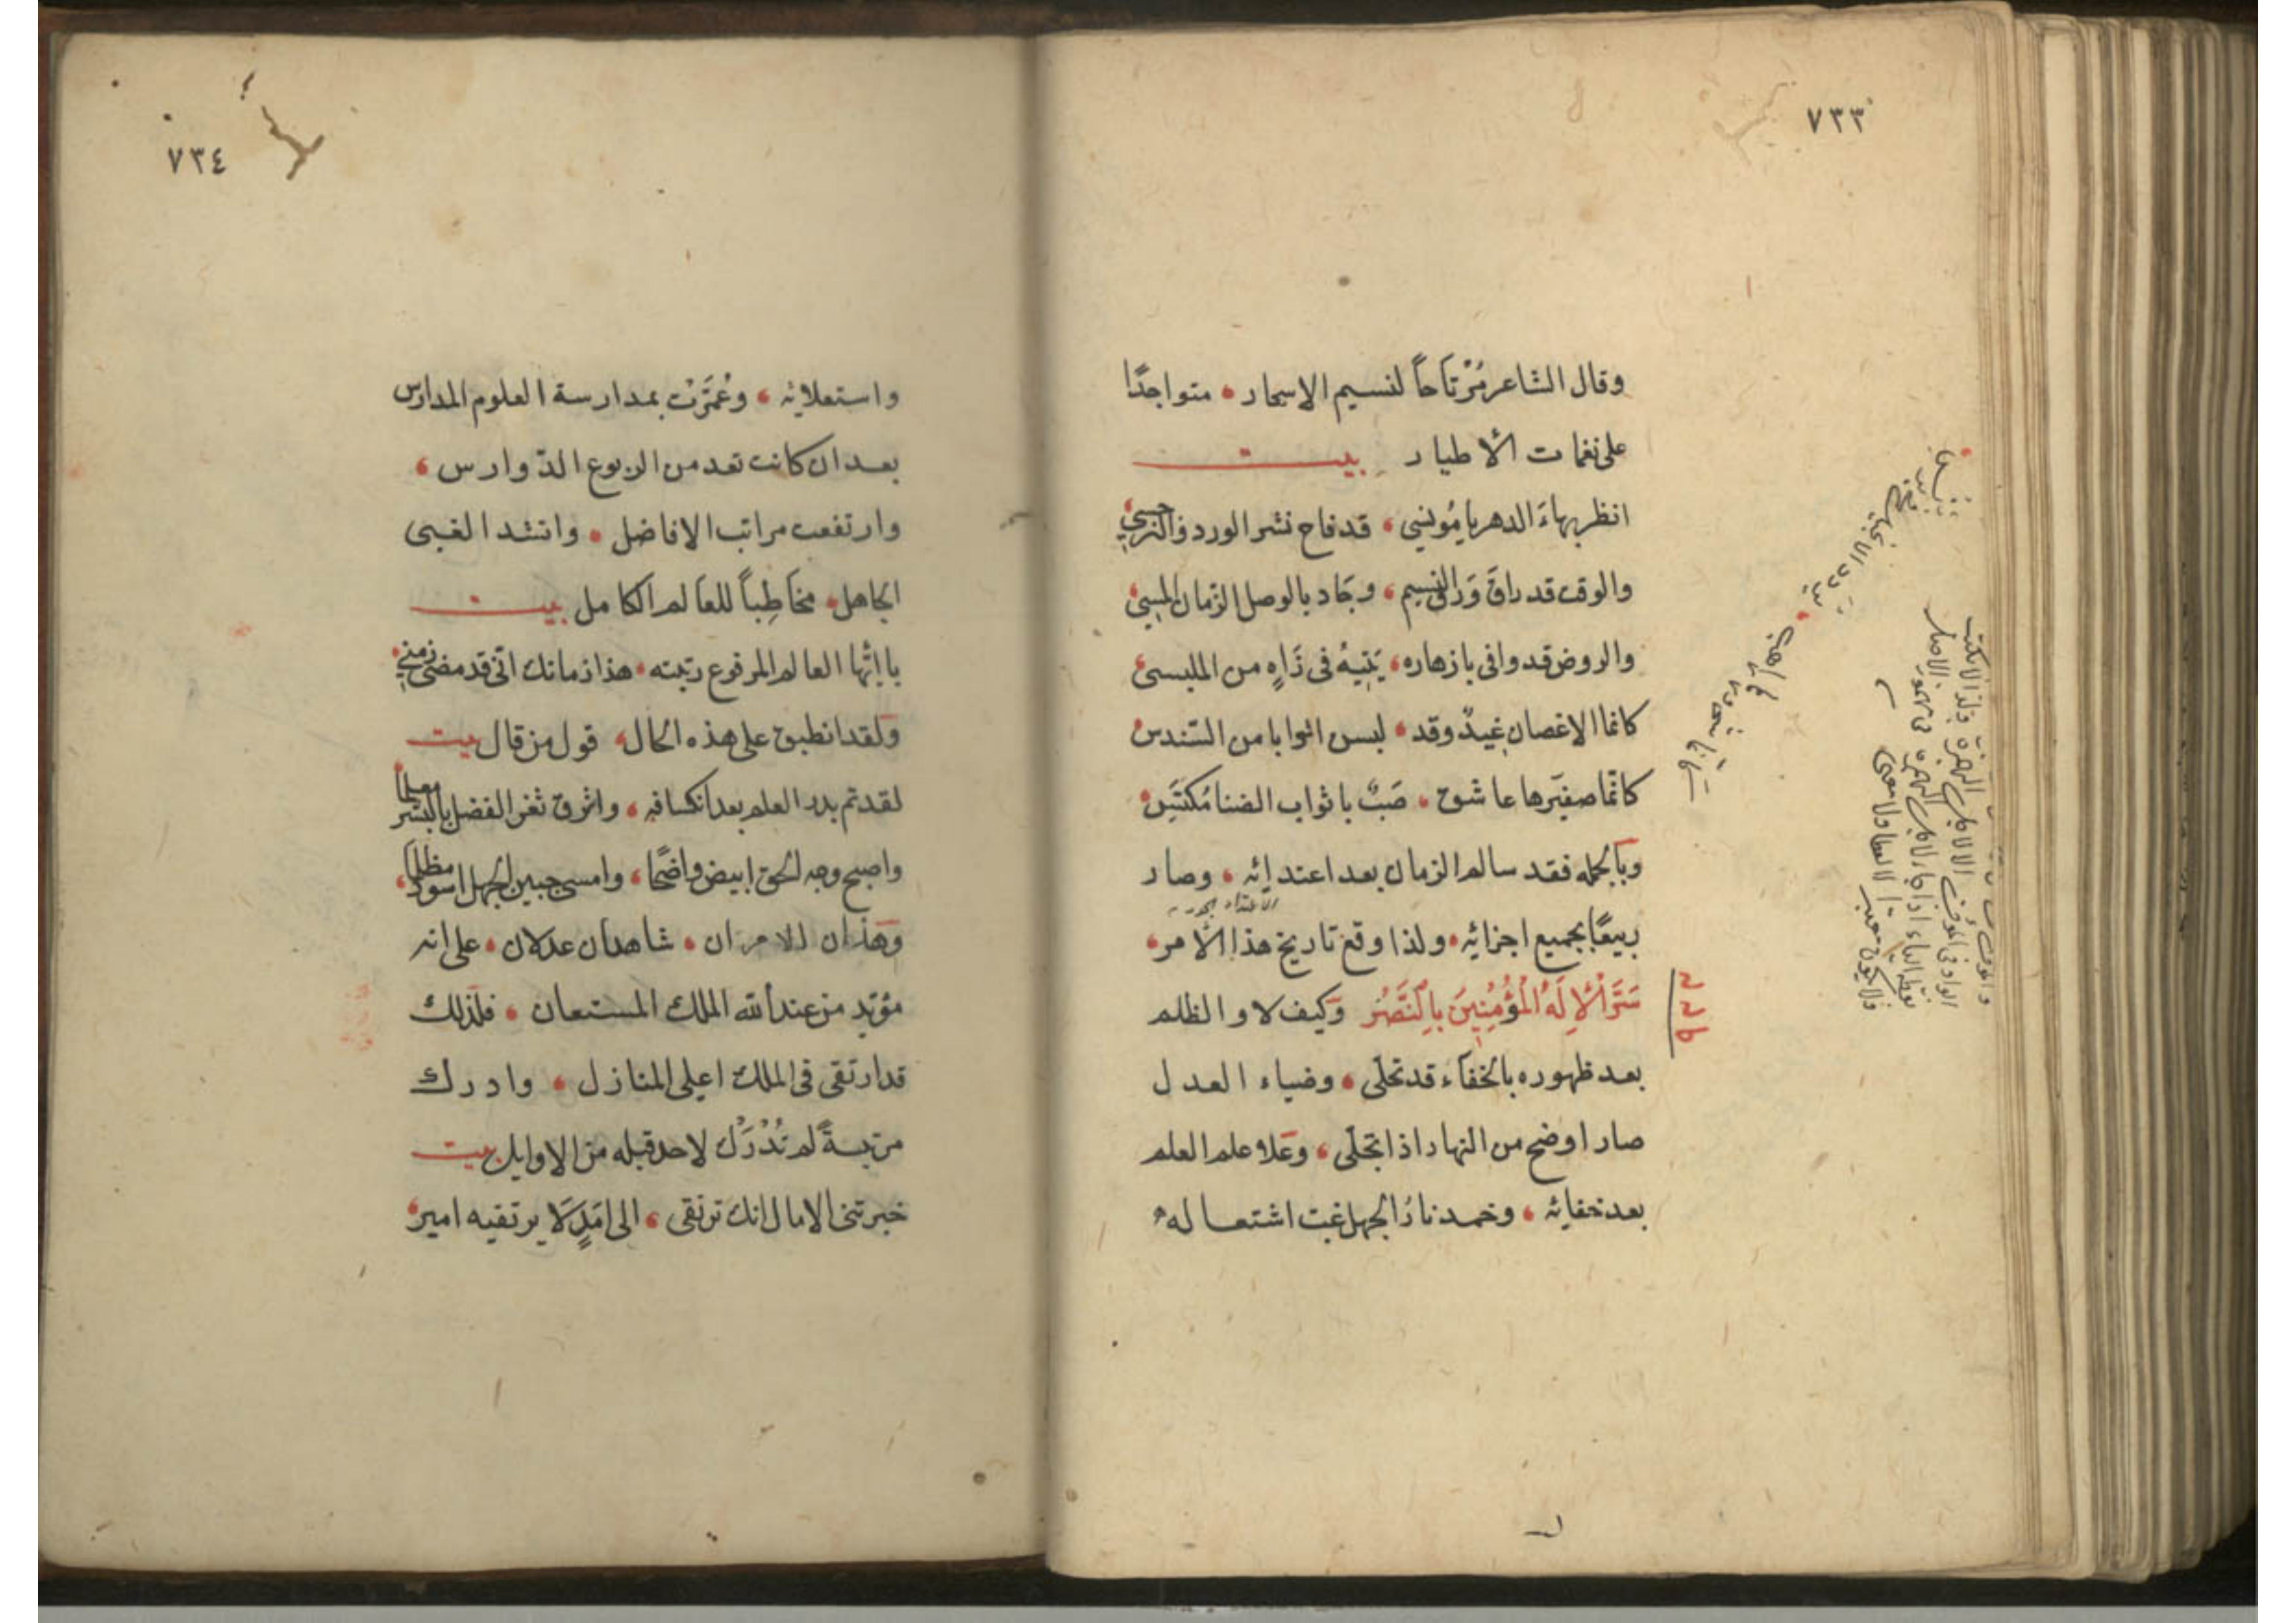 ٧٣٣
وقال الشاعر مُرْتَاحاً لنسيم الاسحار، متواجدًا
على نغمات الأطيار بيت
انظر بهاءَ الدهر يا مُونسي، قد فاح نشر الورد والنرجسِ
والوقت قد راقَ وَرَاقَ النسيم، وجَاد بالوصل الزمان المسئ
والروض قد وافى بازهاره، يَتِيهُ فى زَاهٍ من الملبسى
كانما الاغصان غِيدٌ وقد، لبسن اثوابا من السّندس
كانّما صفيَرها عاشق، صَبٌ باثواب الضنا مُكتَسِ
وبَالجمله فقد سالم الزمان بعد اعتدائه، وصار
ربيعًا بجميع اجزائه، ولذا وقع تاريخ هذا الأمر،
سَرَّ الْإِلَهُ الْمُؤْمِنِينَ بِالنَّصْرِ وَكيف لا والظلم
بعد ظهوره بالخفآء قد تحلّى، وضياء العدل
صار اوضح من النهار اذا تجلّى، وعَلا علم العلم
بعد خفائه، وخمدت نارُ الجهل غبّ اشتعاله
٧٣٤
واستعلائه، وعُمّرَتْ بمدارسة العلوم المدارس
بعد ان كانت تعد من الربوع الدّوارس،
وارتفعت مراتب الافاضل، وانشد الغبى
الجاهل، مخَاطِباً للعَالم الكامل بيت
يا ايّها العالم المرفوع رتبته، هذا زمانك انّى قد مضى زمنى
ولقد انطبق على هذه الحال، قول من قال بيت
لقد تم بدر العلم بعد انكسافه، واشرق ثغر الفضل بالبشر معلما
واصبح وجه الحق ابيض واضحًا، وامسى جبين الجهل اسود مظلما،
وَهذان الامران، شاهدان عدلان، على انه
مؤيد من عند الله الملك المستعان، فلذلك
قد ارتقى فى الملك اعلى المنازل، وادرك
مرتبةً لم تُدْرَك لاحد قبله من الاوايل بيت
خبرتنى الامال انك ترتقى، الى امَدٍ لَا يرتقيه امير